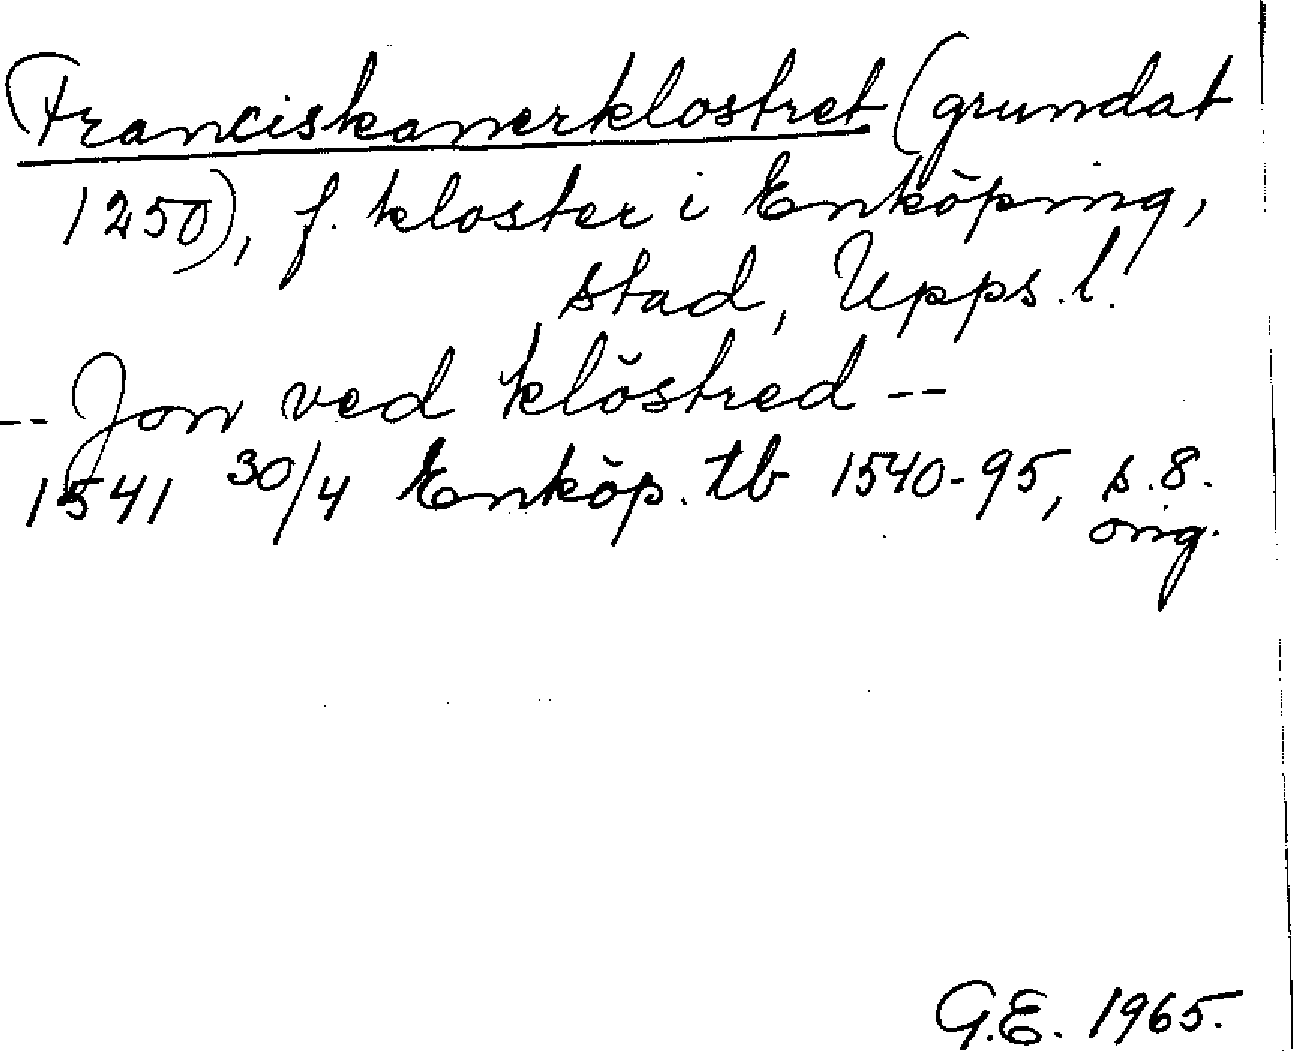 Franciskanerklostret (grundat
1250), f. kloster i Enköping,
stad, Upps. l.
-- Jon ved klöstred --
1541 30/4 Enköp. tb 1540-95, s. 8.
orig.
G.E. 1965.